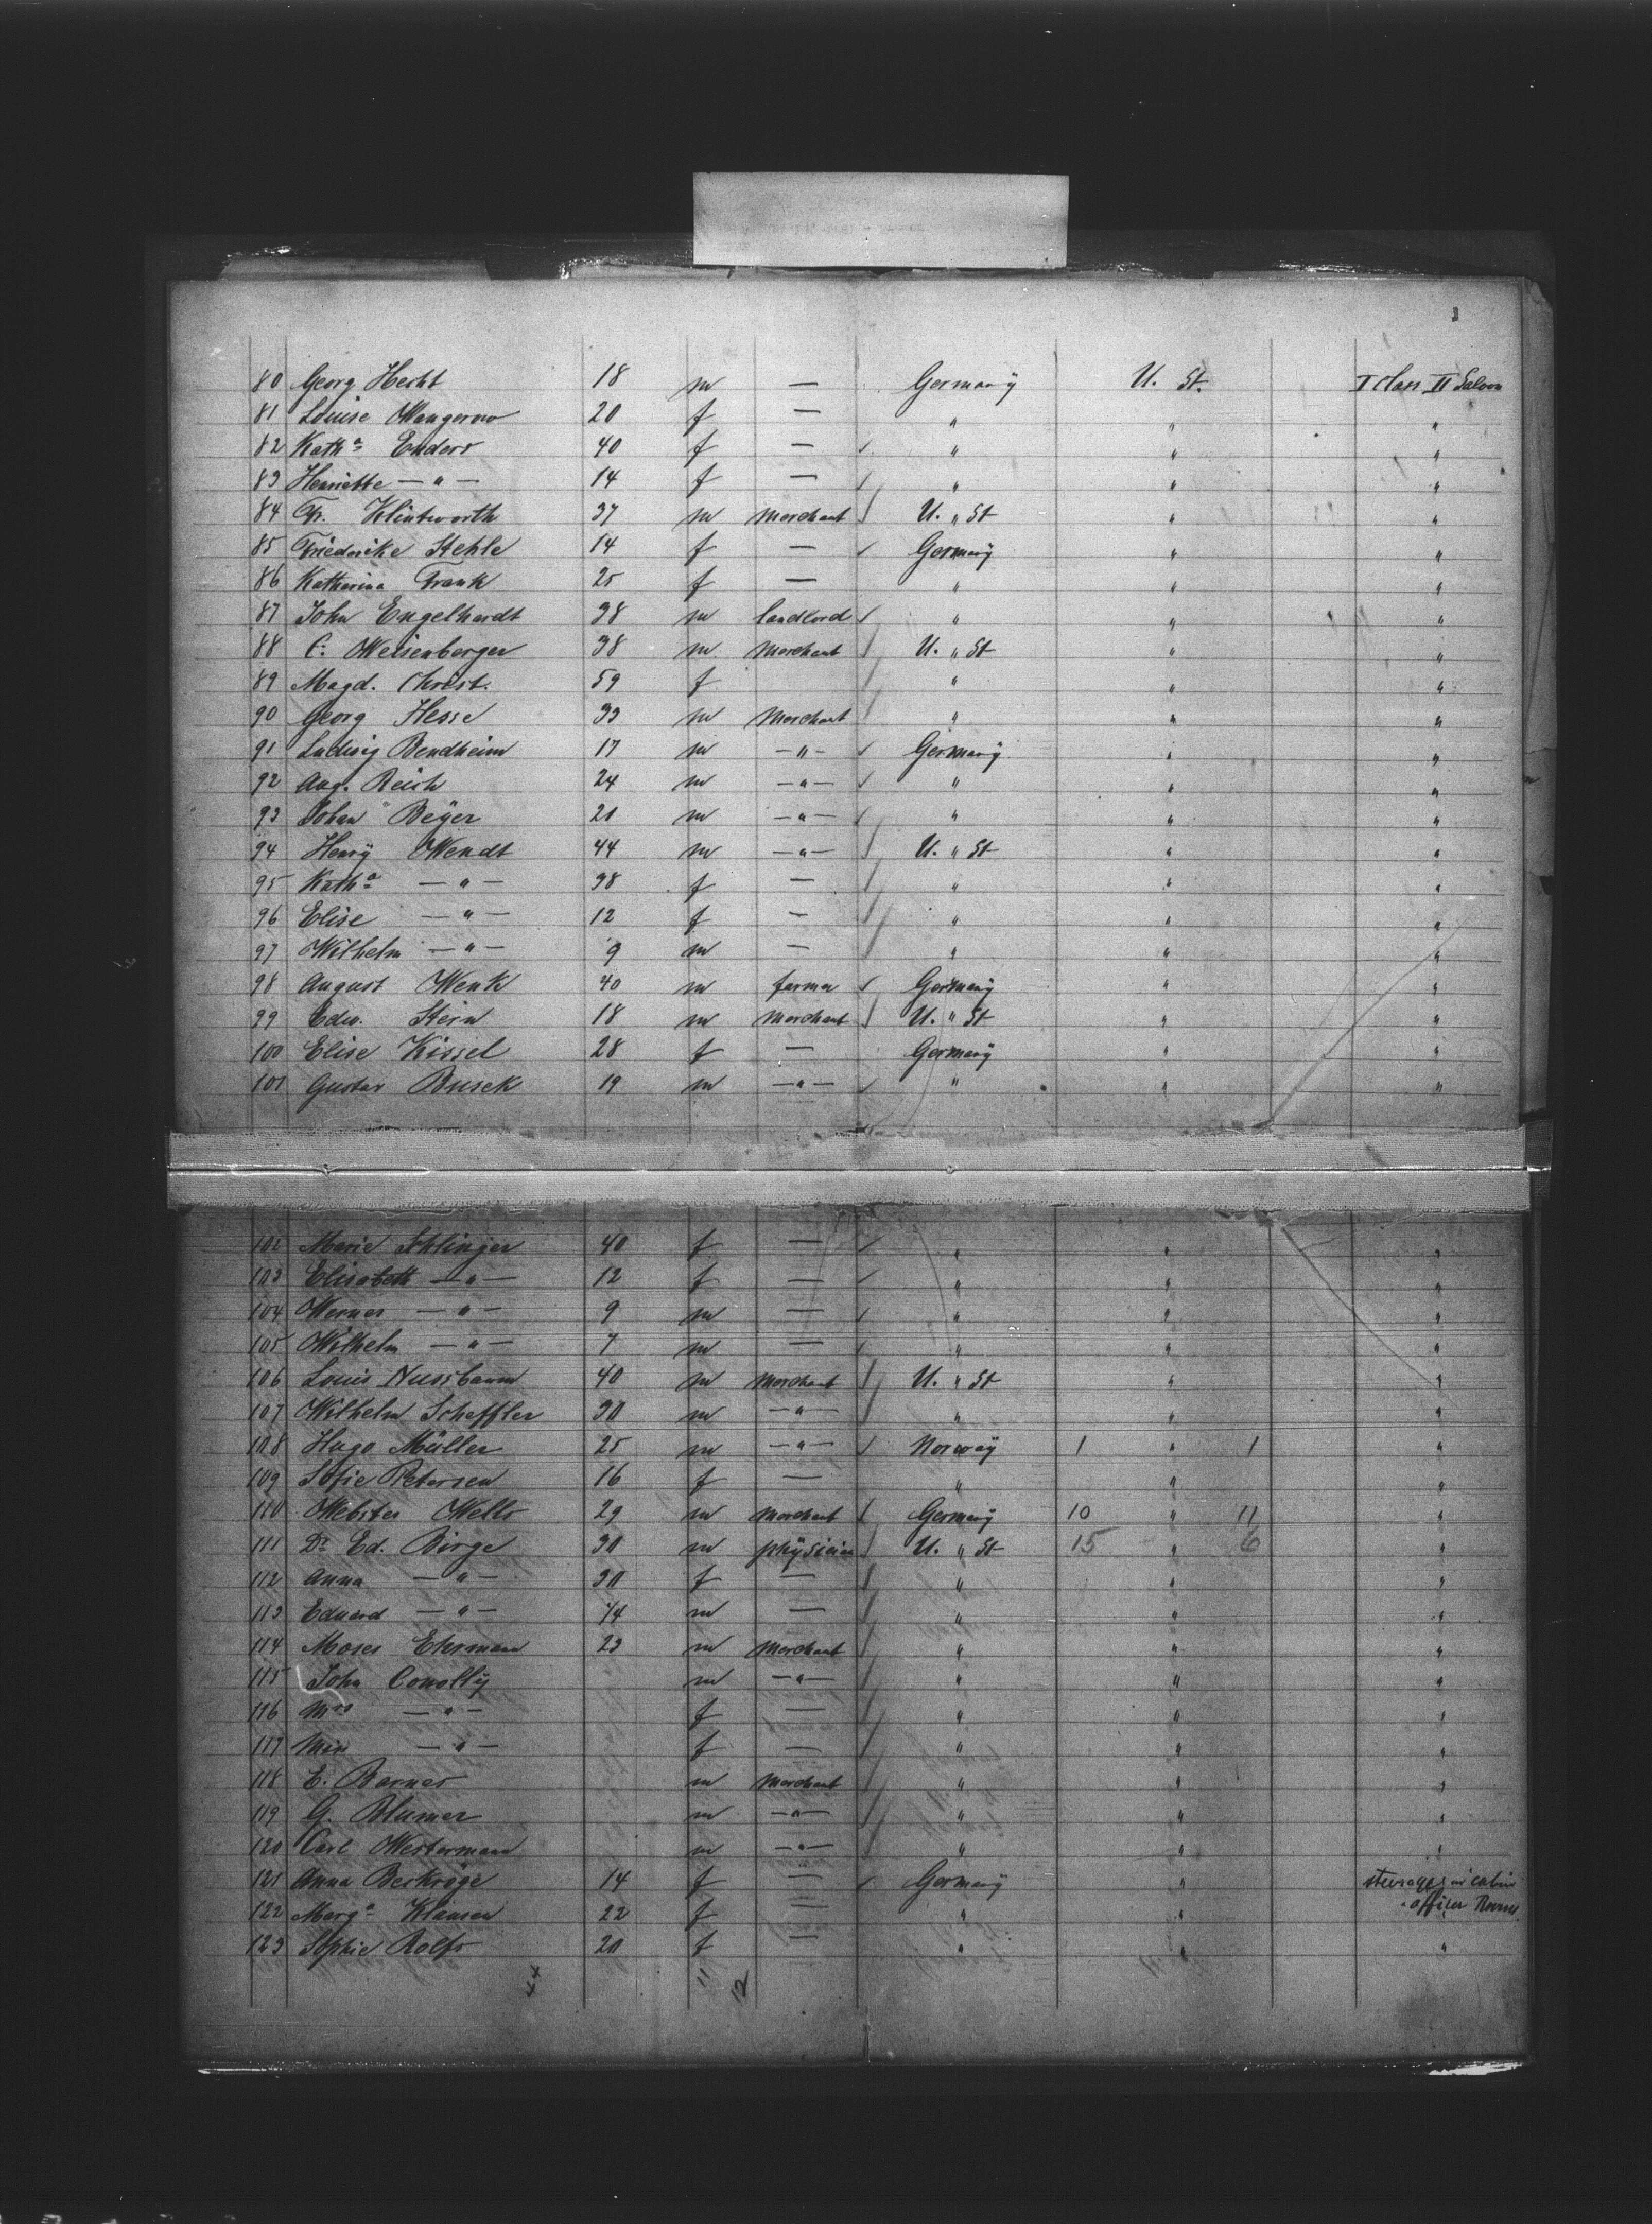 80 Georg Hecht 18 m — Germany U. St. I Class II Saloon
81 Louise Wangerow 20 f — " " "
82 Kathª Enders 40 f — " " "
83 Henriette — " — 14 f — " " "
84 Fr. Klintworth 37 m merchant U. " St " "
85 Friederike Stehle 14 f — Germany " "
86 Katharina Frank 25 f — " " "
87 John Engelhardt 38 m landlord " " "
88 C. Weisenberger 38 m merchant U. " St " "
89 Magd. Christ. 59 f " " "
90 Georg Hesse 33 m merchant " " "
91 Ludwig Bendheim 17 m — " — Germany " "
92 Aug. Reich 24 m — " — " " "
93 Johan Beÿer 21 m — " — " " "
94 Henrÿ Wendt 44 m — " — U. " St " "
95 Kathª — " — 38 f — " " "
96 Elise — " — 12 f — " " "
97 Wilhelm — " — 9 m — " " "
98 August Wenk 40 m farmer Germany " "
99 Edw. Stern 18 m merchant U. " St " "
100 Elise Kissel 28 f — Germany " "
101 Gustav Busek 19 m — " — " " "
102 Marie 40 f — " " "
103 Elisabeth — " — 12 f — " " "
104 Werner — " — 9 m — " " "
105 Wilhelm — " — 7 m — " " "
106 Louis Nussbaum 40 m merchant U. " St " "
107 Wilhelm Scheffler 30 m — " — " " "
108 Hugo Müller 25 m — " — Norway 1 " 1 "
109 Sofie Petersen 16 f — " " "
110 Webster Wells 29 m merchant Germany 10 " 11 "
111 Dr Ed. Birge 30 m phÿsician U. " St 15 " 6 "
112 Anna — " — 30 f — " " "
113 Eduard — " — m — " " "
114 Moses Ehrmann 23 m merchant " " "
115 John Conollÿ m — " — " " "
116 Mrs — " — f — " " "
117 Miss — " — f — " " "
118 E. Barnes m merchant " " "
119 G. Blumer m — " — " " "
120 Carl Westermann m — " — " " "
121 Anna 14 f — Germany " steerage in cabin
122 Margª Klausen 22 f — " " officer
123 Sophie Rolfs 20 f — " " "
44 11 12